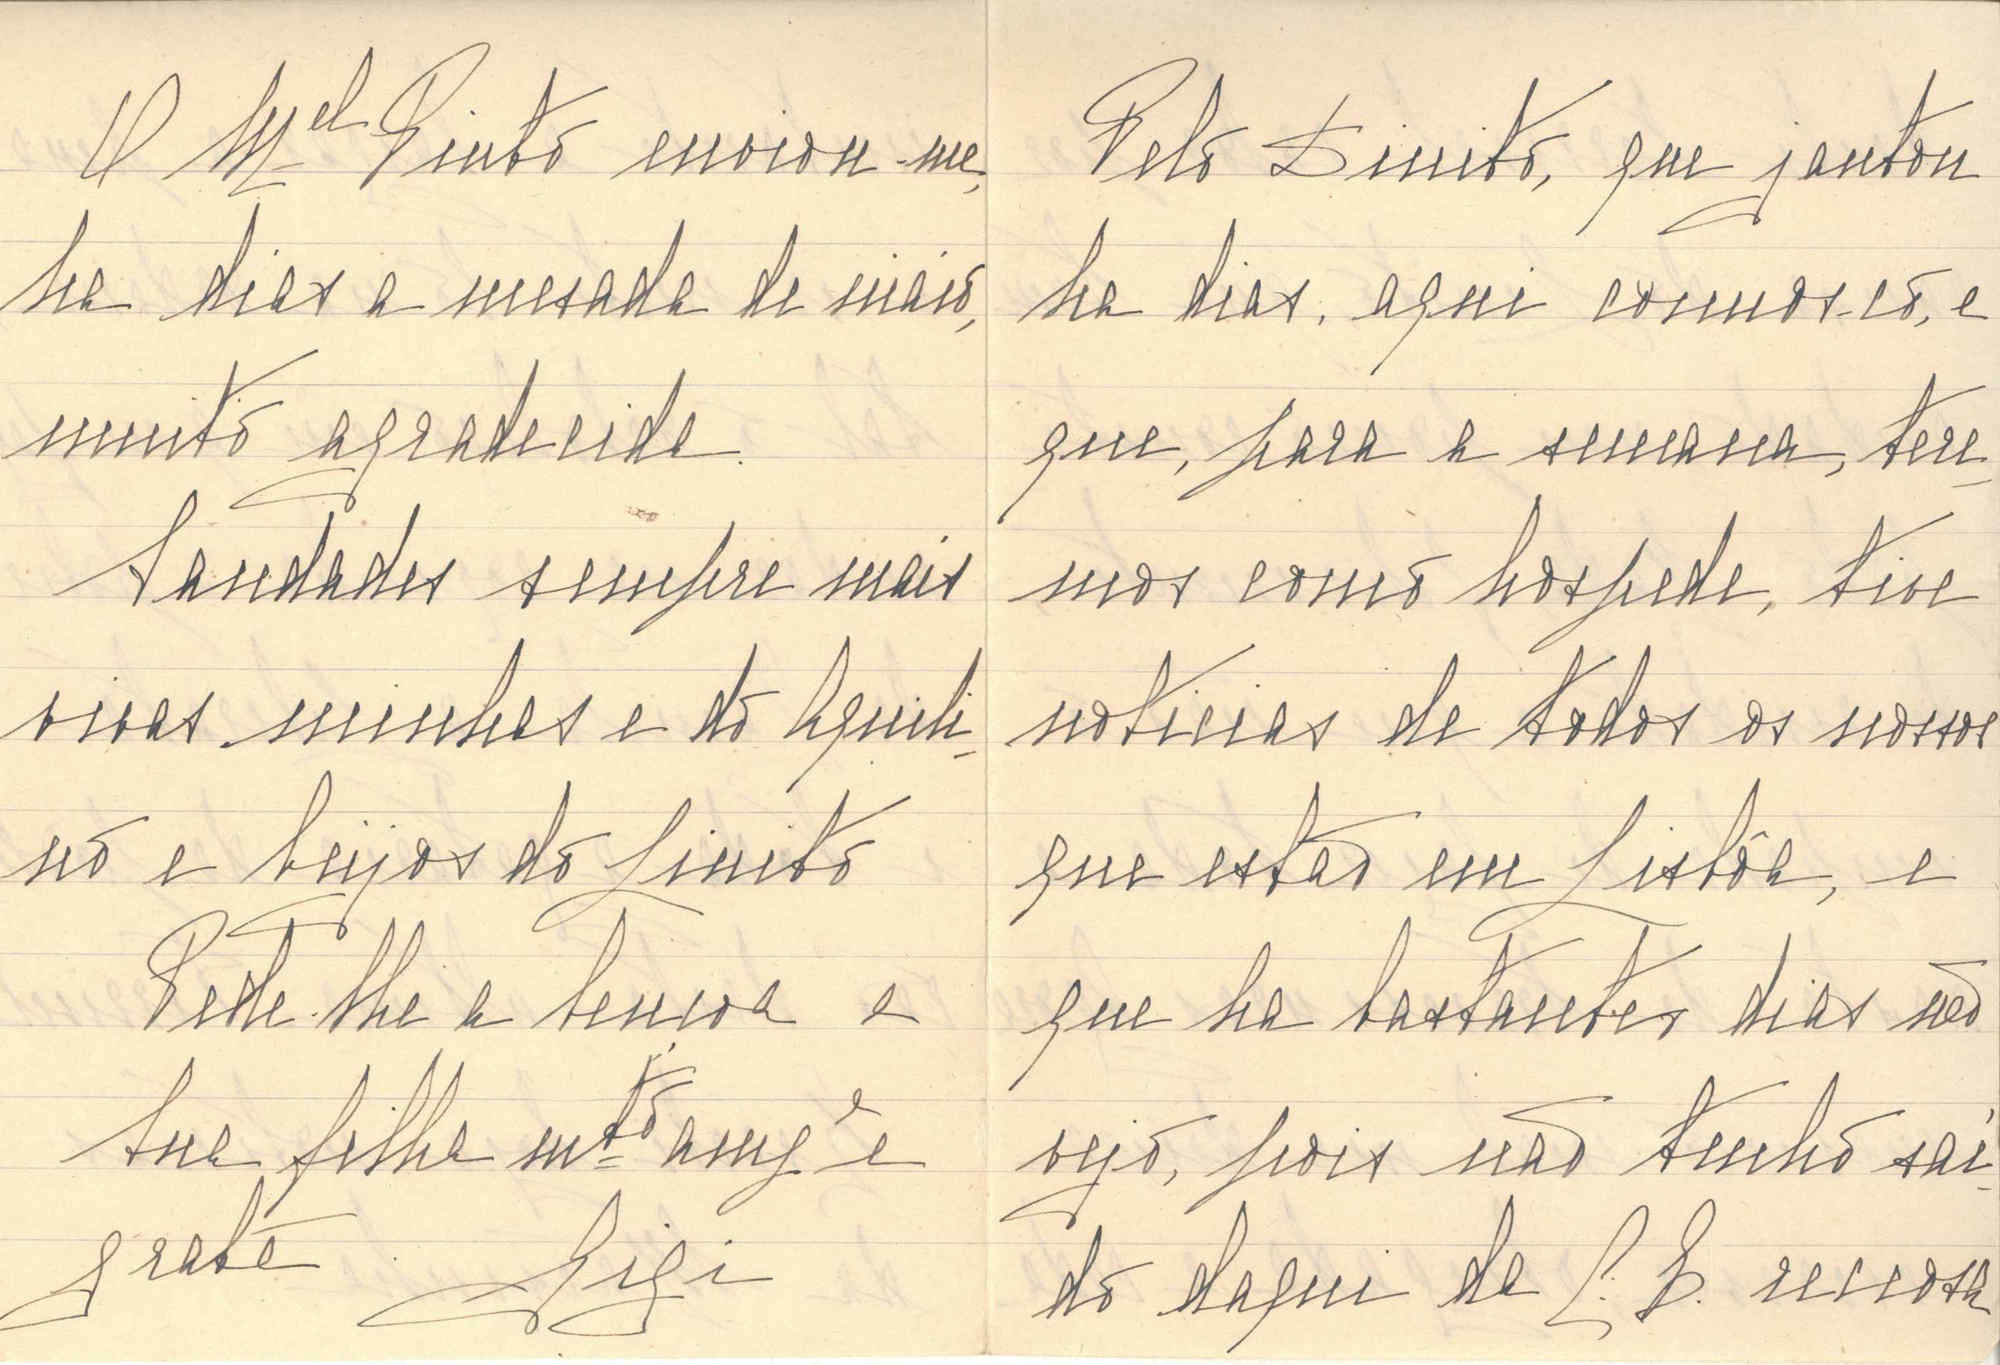 O M.el Pinto enviou-me,
ha dias a mesada de maio,
muito agradecida.
Saudades sempre mais
vivas minhas e do Aquili-
no e beijos do Linito
Pede-lhe a bençoa e
sua filha mto amga e
grata Gigi
Pelo Dinito, que jantou
ha dias, aqui comnos-co, e
que, para a semana, tere-
mos como hospede, tive
noticias de todos os nossos
que estão em Lisbôa, e
que ha bastantes dias não
vejo, pois não tenho sai-
do daqui da C. B. receosa